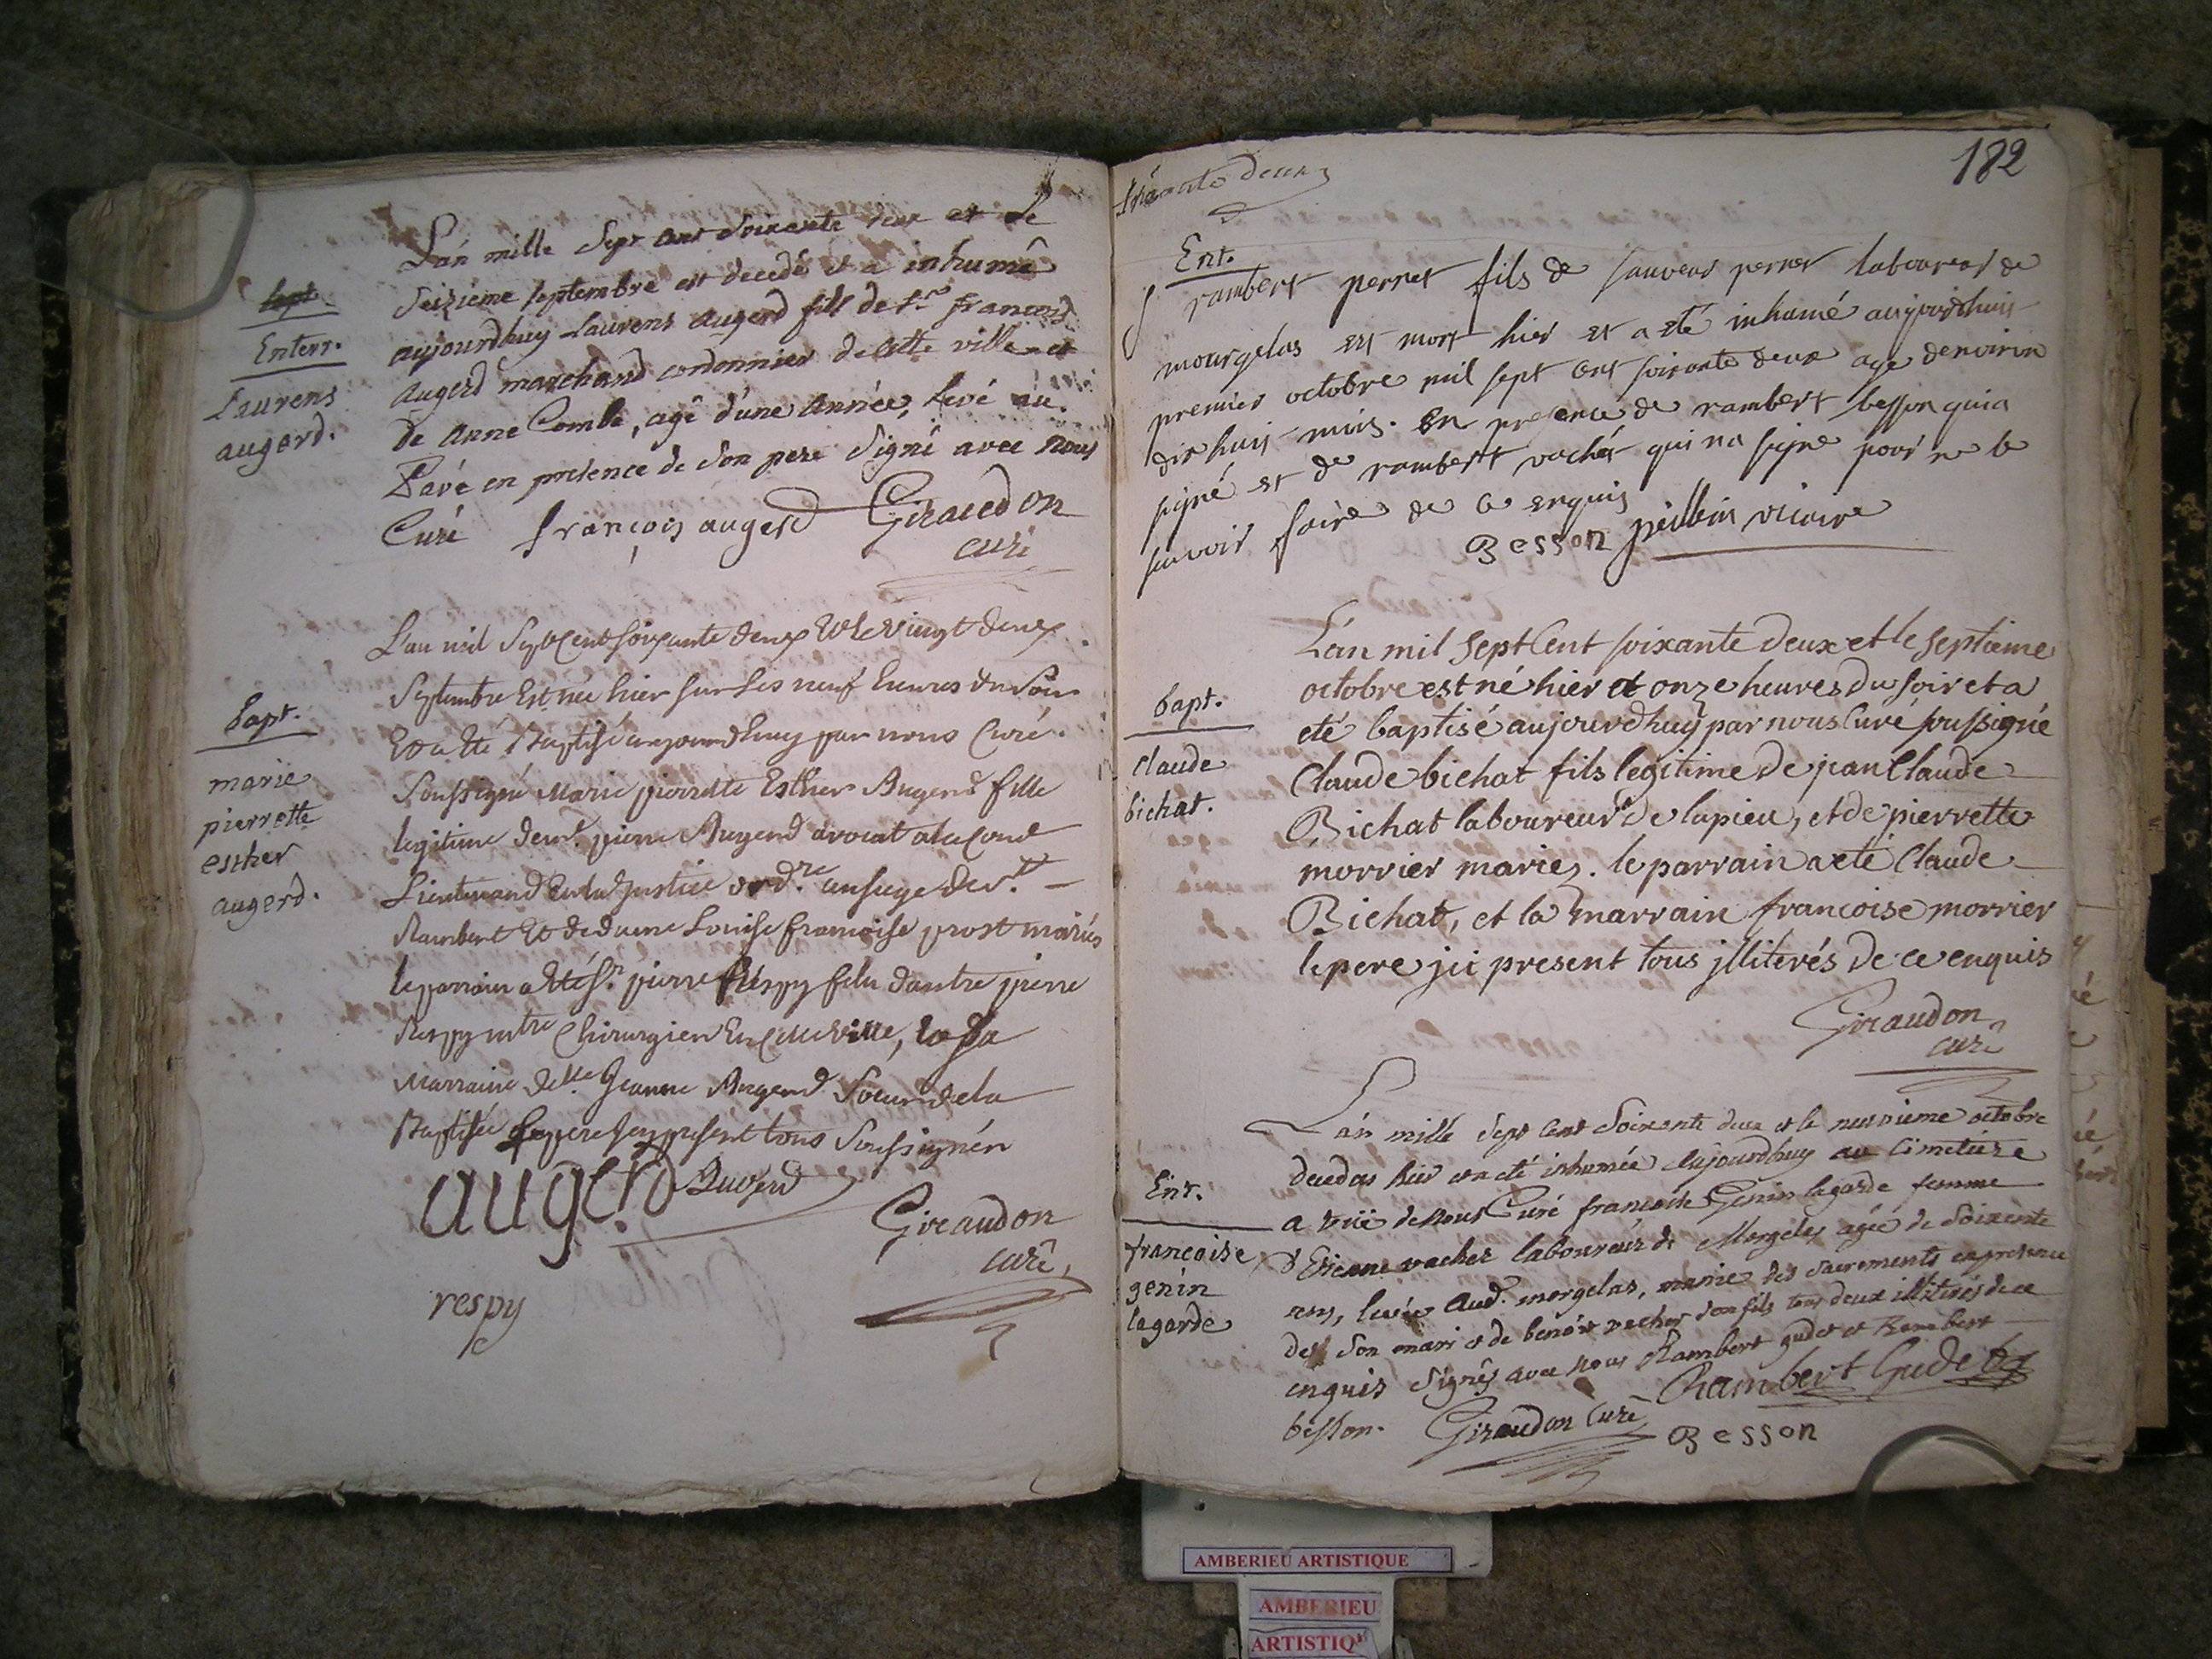 L'an mille Sept cent Soixante deux et le
Seizième septembre est decedé et a inhumé
aujourdhuy Laurens augerd fils de Sr. francois
augerd marchand cordonnier de cette ville et
de anne Combe, agé d'une année, levé au
Pavé en presence de Son pere Signé avec nous
Curé françois augerd Giraudon
curé
bapt.
Enterr.
Laurens
augerd.
L'an mil Sept Cent soixante deux Et le vingt deux
Septembre Est née hier sur les neuf heures du Soir
Et a été Baptisé aujourdhuy par nous Curé
Soussigné Marie pierrette Esther Augerd fille
legitime de mr. pierre Augerd avocat a la Cour
Lieutenand En la Justice ordre. au siege de St.
Rambert Et de dame Louise francoise prost mariés
le parrain a été Sr. pierre Respy fils dautre pierre
Respy mtre Chirurgien En cette ville, la
Marraine delle. Jeanne Augerd Soeur de la
Baptisée le pere presént tous Soussignén
augerd Augerd
Giraudon
curé
respy
bapt.
marie
pierrette
esther
augerd.
182
trénte deux
Ent.
rambert perret fils de perret laboureur de
mourgelas est mort hier et a eté inhumé aujourdhuis
premier octobre mil sept cent soixante deux agé denviron
dix huit mois. En presence de rambert besson qui a
signé et de rambert vachér qui na signé pour ne le
savoir faire de ce enquis
Besson peillein vicaire
L'án mil Sept Cent soixante deux et le Septieme
octobre est né hier et onze heures du soir et a
eté baptisé aujourdhuy par nous Curé soussigné
Claude bichat fils legitime de jean Claude
Bichat laboureur de lupieu, et de pierrette
morrier mariez. le parrain a eté Claude
Bichat, et la marrain francoise morrier
le pere jci present tous jlliterés de ce enquis
Giraudon
curé
bapt.
Claude
bichat.
L'an mille Sept Cent Soixante deux et le neuvieme octobre
decedas hier et a eté inhumée aujourdhuy au Cimetiere
a de nous Curé francoise Genin lagarde femme
d'Etienne vacher laboureur de Morgelas agée de Soixante
ans, levée Aud. morgelas, munie des Sacrements en presence
de Son mari et de benoit vacher son fils tous deux illiterés de ce
enquis Signés avec nous Rambert gudet et Rambert
besson. Giraudon Curé Rambert Gudet
Besson
Ent.
francoise
genin
lagarde
AMBERIEU ARTISTIQUE
AMBERIEU
ARTISTIQ